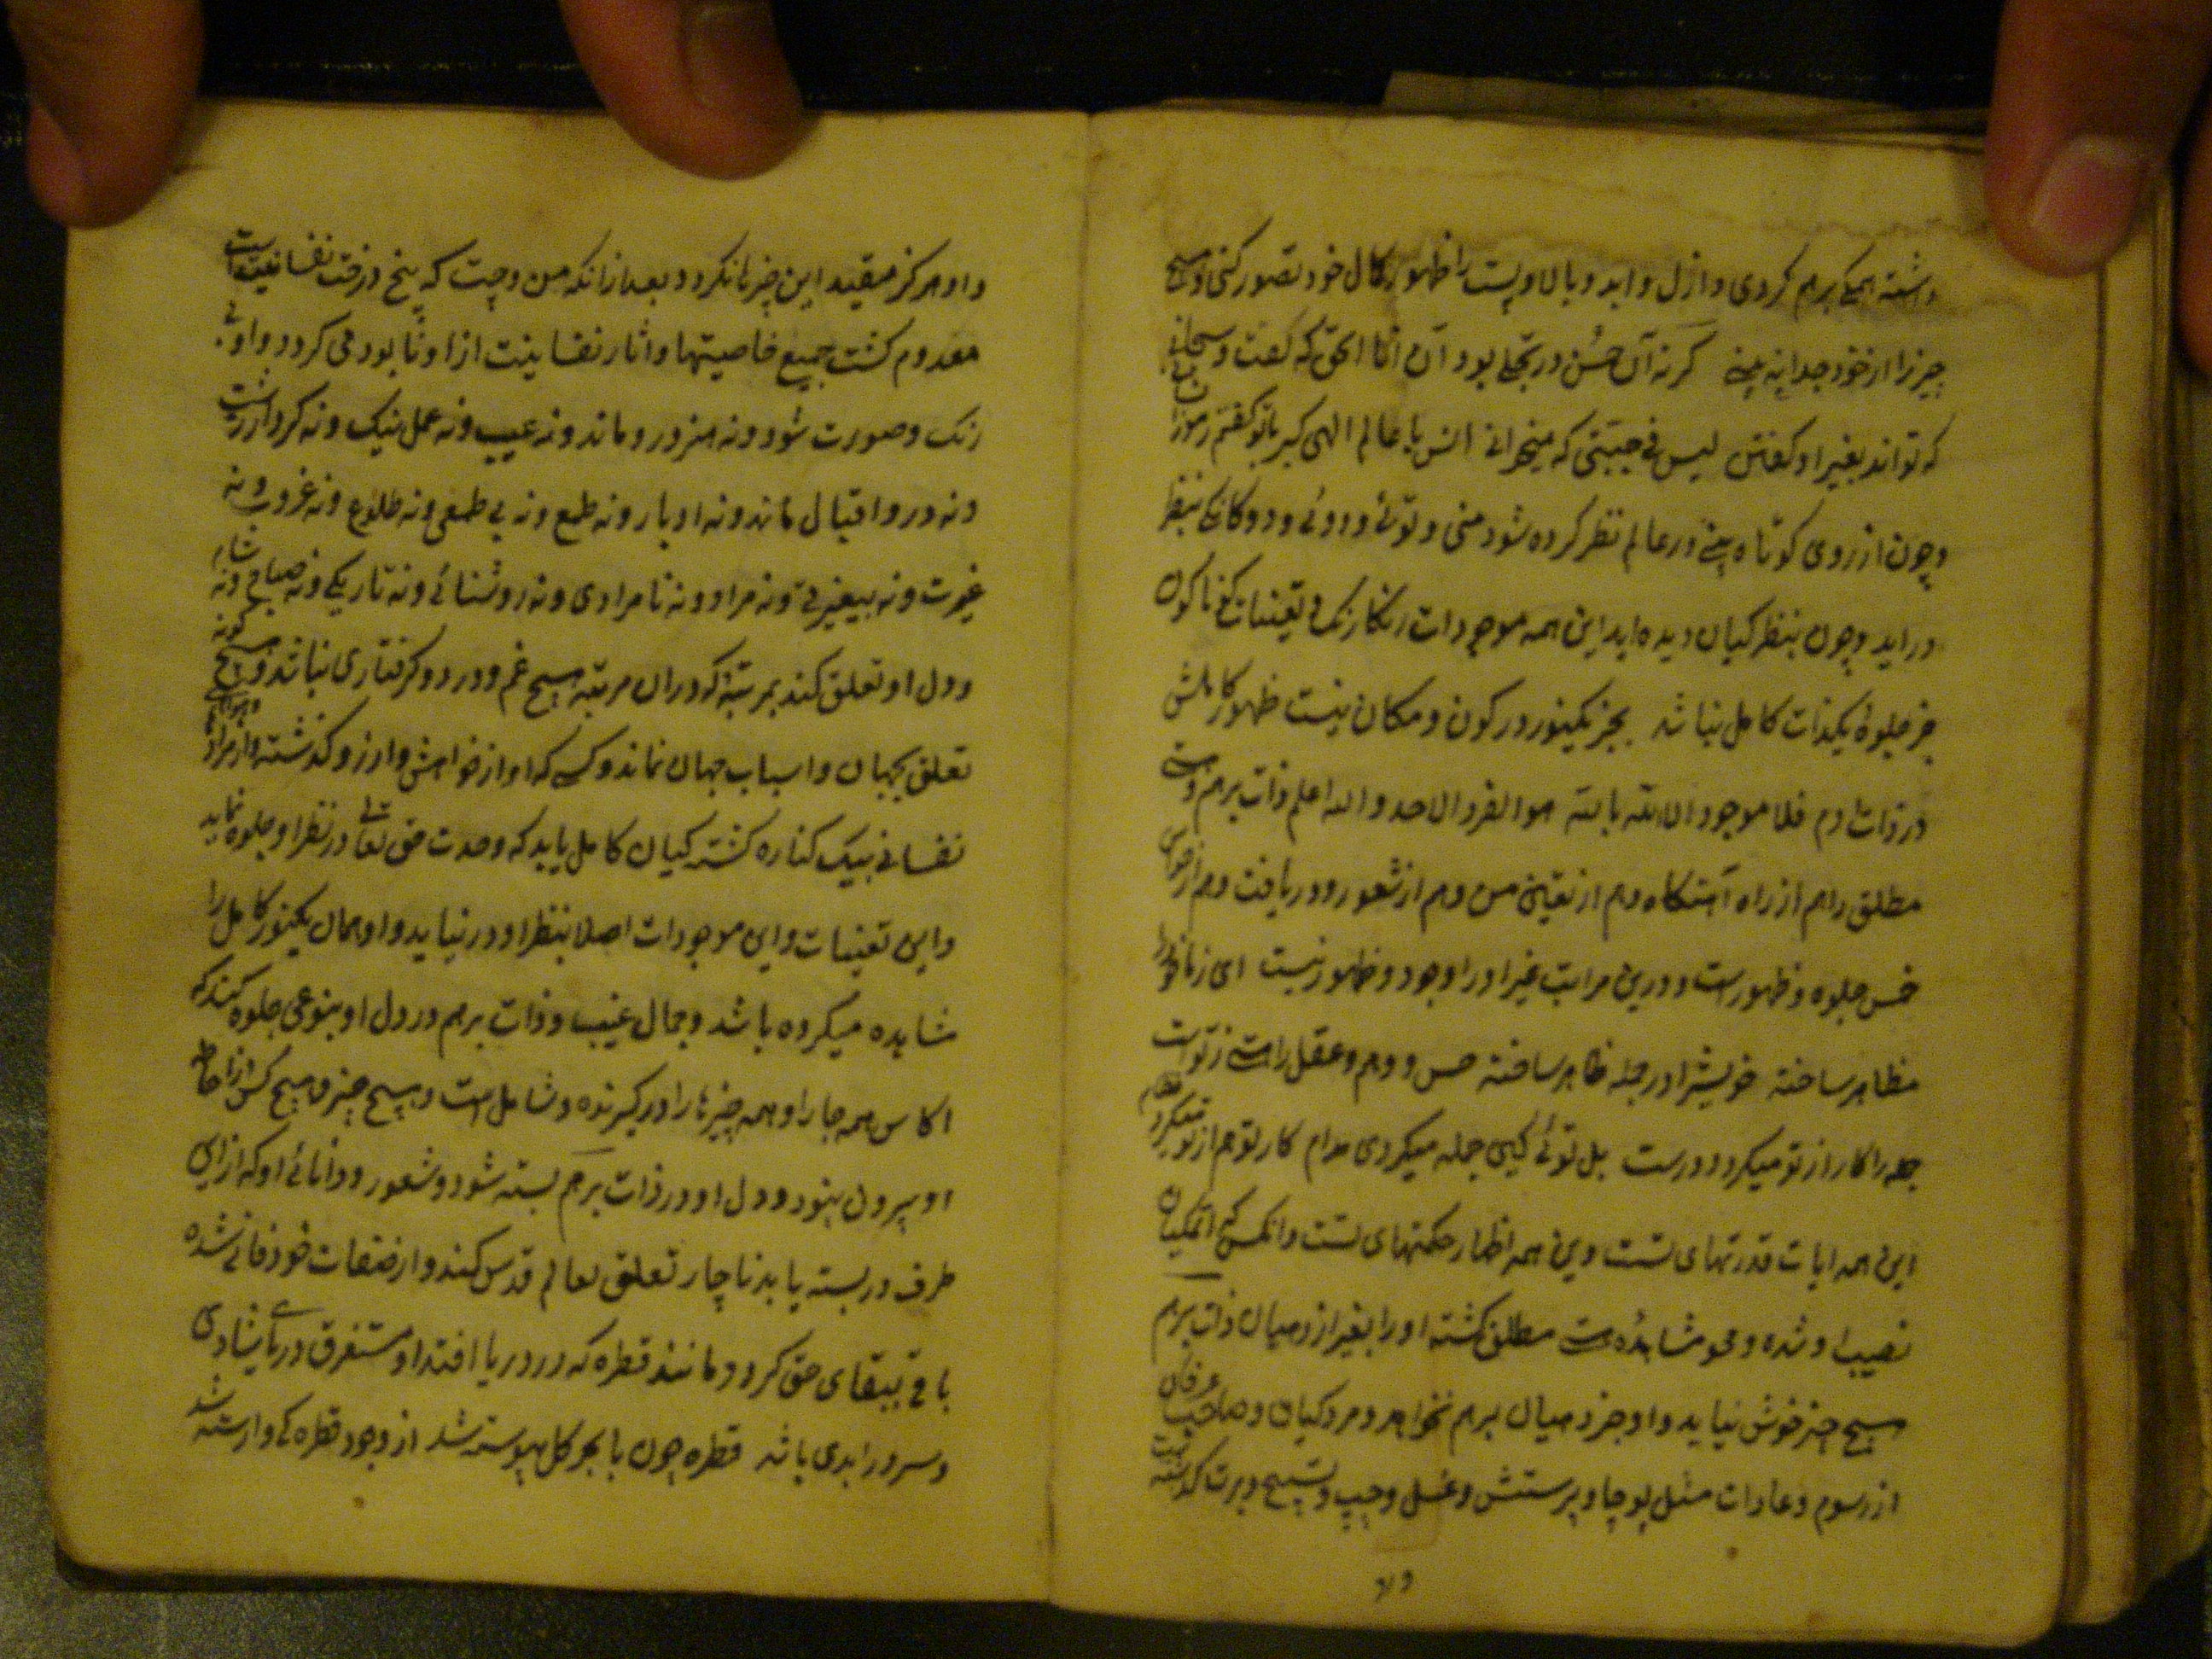 داشته همکی برهم کردی و ازل و ابد و بالا و پست را ظهور کمال خود تصور کنی و هیچ
چیز را از خود جدا نه بینی گر نه آن حسن در تجلی بود آن انا الحق که گفت و سبحانی
که تواند بغیر او گفتن لیس فی جبتی که میخوانی انس با عالم الهی گیر با تو گفتم رموز
و چون از روی کوتاه بینی در عالم نظر کرده شود منی و توئی و دوئی و دوکانکی بنظر
در اید و چون بنظر کیان دیده اید این همه موجودات رنکارنک و تعینات کوناکون
جز جلوهٔ یکذات کامل نباشد بجز یکنور در کون و مکان نیست ظهور کاملش
در ذات ادم فلا موجود الا الله بالله هو الفرد الاحد والله اعلم ذات برهم و هستی
مطلق راهم از راه آهنکاه و هم از تعین من و هم از شعور و دریافت و هم از حواس
خمس جلوه و ظهورست و درین مراتب غیر او را وجود و ظهور نیست ای زمانی
مظاهر ساخته خویش را در جمله ظاهر ساخته حس و وهم و عقل را هستی ز تو است
جمله را کار از تو میکردد درست بل توئی کین جمله میکردی مدام کار تو هم از تو میکردد تمام
این همه ایات قدرتهای تست وین همه اظهار حکمتهای تست و انکس که اتمکیان
نصیب او شده و محو مشاهدهٔ هستی مطلق کشته او را بغیر از دمیان ذات برهم
هیچ چیز خوش نیاید و او جز دمیان برهم نخواهد و مرد کیان و صاحب عرفان
از رسوم و عادات مثل پوجا و پرستش و غسل و جپ و تسبیح و برت گذشته
و او هرکز مقید این چیزها نکردد بعد از انکه من و چت که بیخ درخت نفسانیت است
معدوم کشت جمیع خاصیتها و اثار نفسانیت از او نابود می کردد و او بی
رنک و صورت شود و نه هنر درو ماند و نه عیب و نه عمل نیک و نه کردار زشت
و نه درو اقبال ماند و نه ادبار و نه طمع و نه بی طمعی و نه طلوع و نه غروب و نه
غیرت و نه بیغیرتی و نه مراد و نه نامرادی و نه روشنائی و نه تاریکی و نه صباح و نه شام
و دل او تعلق کند بمرتبهٔ که دران مرتبه هیچ غم و درد و گرفتاری نباشد و هیچ گونه
تعلق بجهان و اسباب جهان نماند و کسی که او از خواهش و ارزو گذشته و از مراد و هوای
نفسانی بیک کناره کشته کیان کامل یابد که وحدت حق تعالی در نظر او جلوه نماید
و این تعینات و این موجودات اصلا بنظر او در نیاید و او همان یکنور کامل را
مشاهده میکرده باشد و جمال غیب و ذات برهم در دل او بنوعی جلوه کند که
اکاس همه جا را و همه چیزها را در کیرنده و شامل است و هیچ چیز و هیچ کس از احاطه
او بیرون نبود و دل او در ذات برهم بسته شود و شعور و دانائی او که از این
طرف در بسته یابد ناچار تعلق بعالم قدس کند و از صفات خود فانی شده
باقی ببقای حق کردد و مانند قطره که در دریا افتد او مستغرق دریای شادی
و سرور ابدی باشد قطره چون با بحر کل پیوسته شد از وجود قطره کی وارسته شد